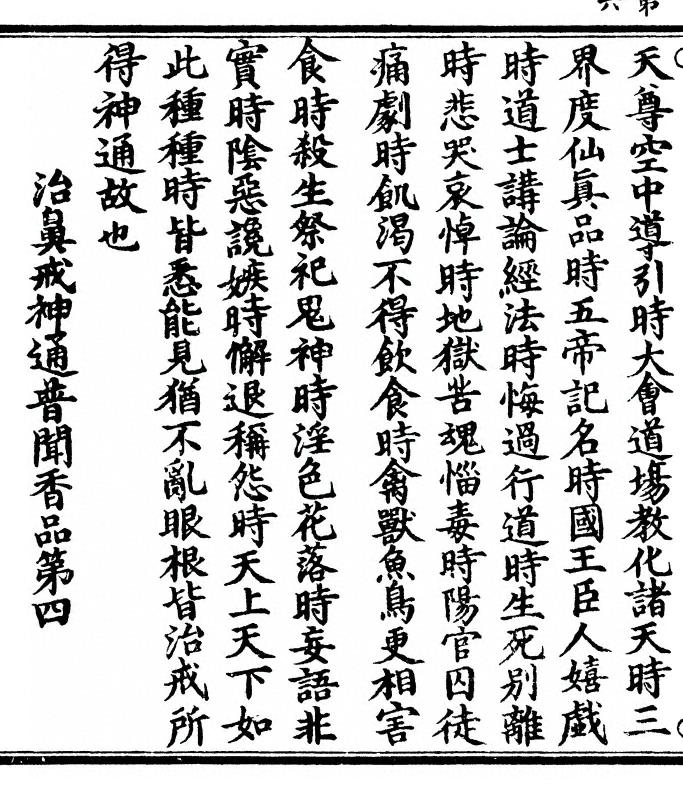 第六
天尊空中導引時大會道場教化諸天時三
界度仙眞品時五帝記名時國王臣人嬉戲
時道士講論經法時悔過行道時生死別離
時悲哭哀悼時地獄苦魂惱毒時陽官囚徒
痛劇時飢渴不得飲食時禽獸魚鳥更相害
食時殺生祭祀鬼神時淫色花落時妄語非
實時陰惡讒嫉時懈退稱怨時天上天下如
此種種時皆悉能見猶不亂眼根皆治戒所
得神通故也
治鼻戒神通普聞香品第四